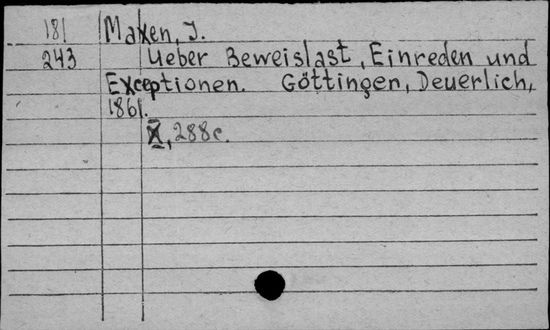 181 Maxen, J.
243 Ueber Beweislast, Einreden und
Exceptionen. Göttingen, Deuerlich,
1861.
X, 288 c.